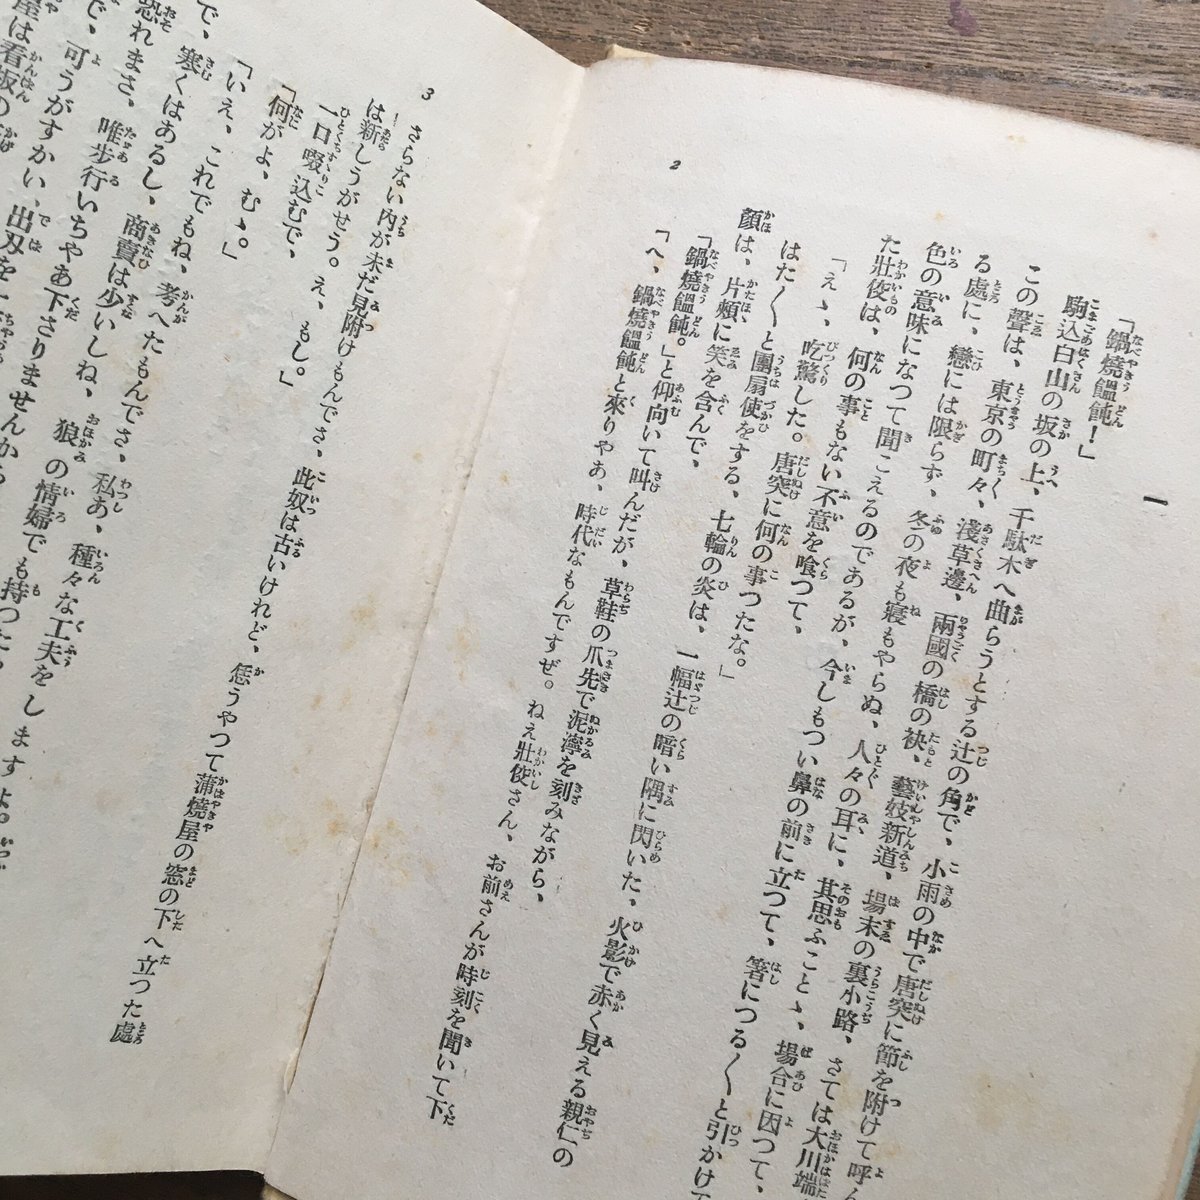 一
「鍋燒饂飩！」
駒込白山の坂の上、千駄木へ曲らうとする辻の角で、小雨の中で唐突に節を附けて呼ん
この聲は、東京の町々、淺草邊、兩國の橋の袂、藝妓新道、場末の裏小路、さては大川端
る處に、戀には限らず、冬の夜も寢もやらぬ、人々の耳に、其思ふことゝ、場合に因つて、
色の意味になつて聞こえるのであるが、今しもつい鼻の前に立つて、箸につる〱と引かけ
た壯俊は、何の事もない不意を喰つて、
「えゝ、吃驚した。唐突に何の事つたな。」
はた〱と團扇使をする、七輪の炎は、一幅辻の暗い隅に閃いた、火影で赤く見える親仁の
顏は、片頰に笑を含んで、
「鍋燒饂飩。」と仰向いて叫んだが、草鞋の爪先で泥濘を刻みながら、
「へ、鍋燒饂飩と來りやあ、時代なもんですぜ。ねえ壯俊さん、お前さんが時刻を聞いて下
2
3
さらない内が未だ見附けもんでさ、此奴は古いけれど、恁うやつて蒲燒屋の窓の下へ立つた處
は新しうがせう。え、もし。」
一口啜込むで、
「何がよ、むゝ。」
「いえ、これでもね、考へたもんでさ、私あ、種々な工夫をしますよ。
で、寒くはあるし、商賣は少いしね、狼の情婦でも持つた、
恐れまさ、唯步行いちやあ下さりませんから
で、可うがすかい、出刃を
屋は看板の